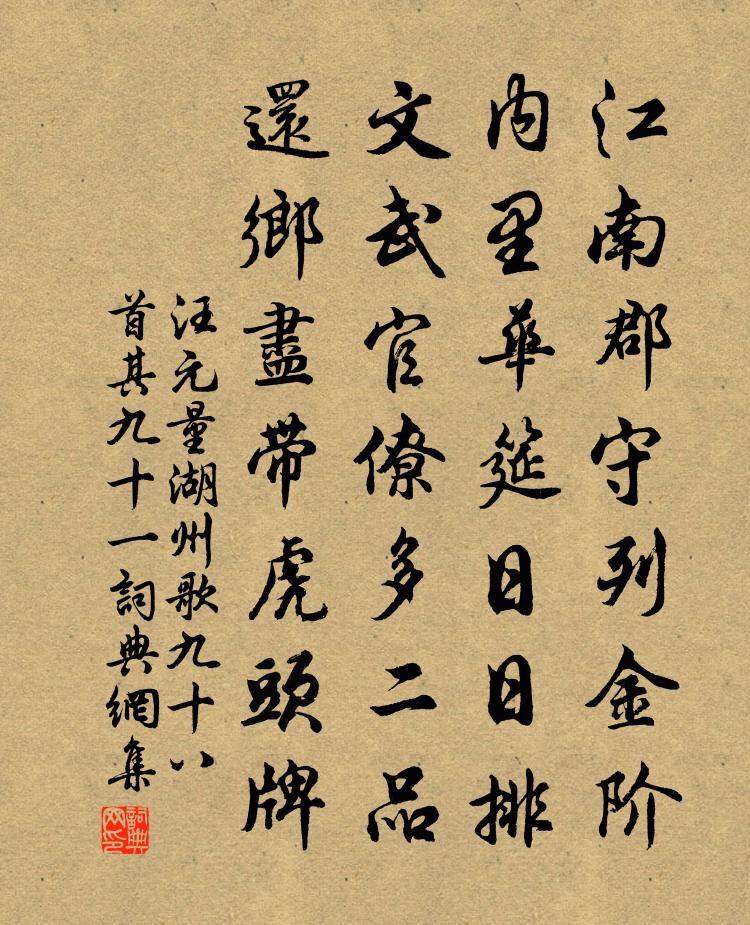 江南郡守列金阶
内里華筵日日排
文武官僚多二品
還鄉盡带虎頭牌
汪元量湖州歌九十八
首其九十一詞典網集
詞典网印